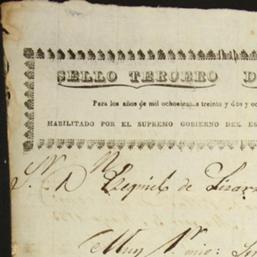 SELLO TERCERO D
Para los años de mil ochocientos treinta y dos y oc
HABILITADO POR EL SUPREMO GOBIERNO DEL ES
Sr. Dn
Ezequiel de Lizar
Muy Sr. mio: